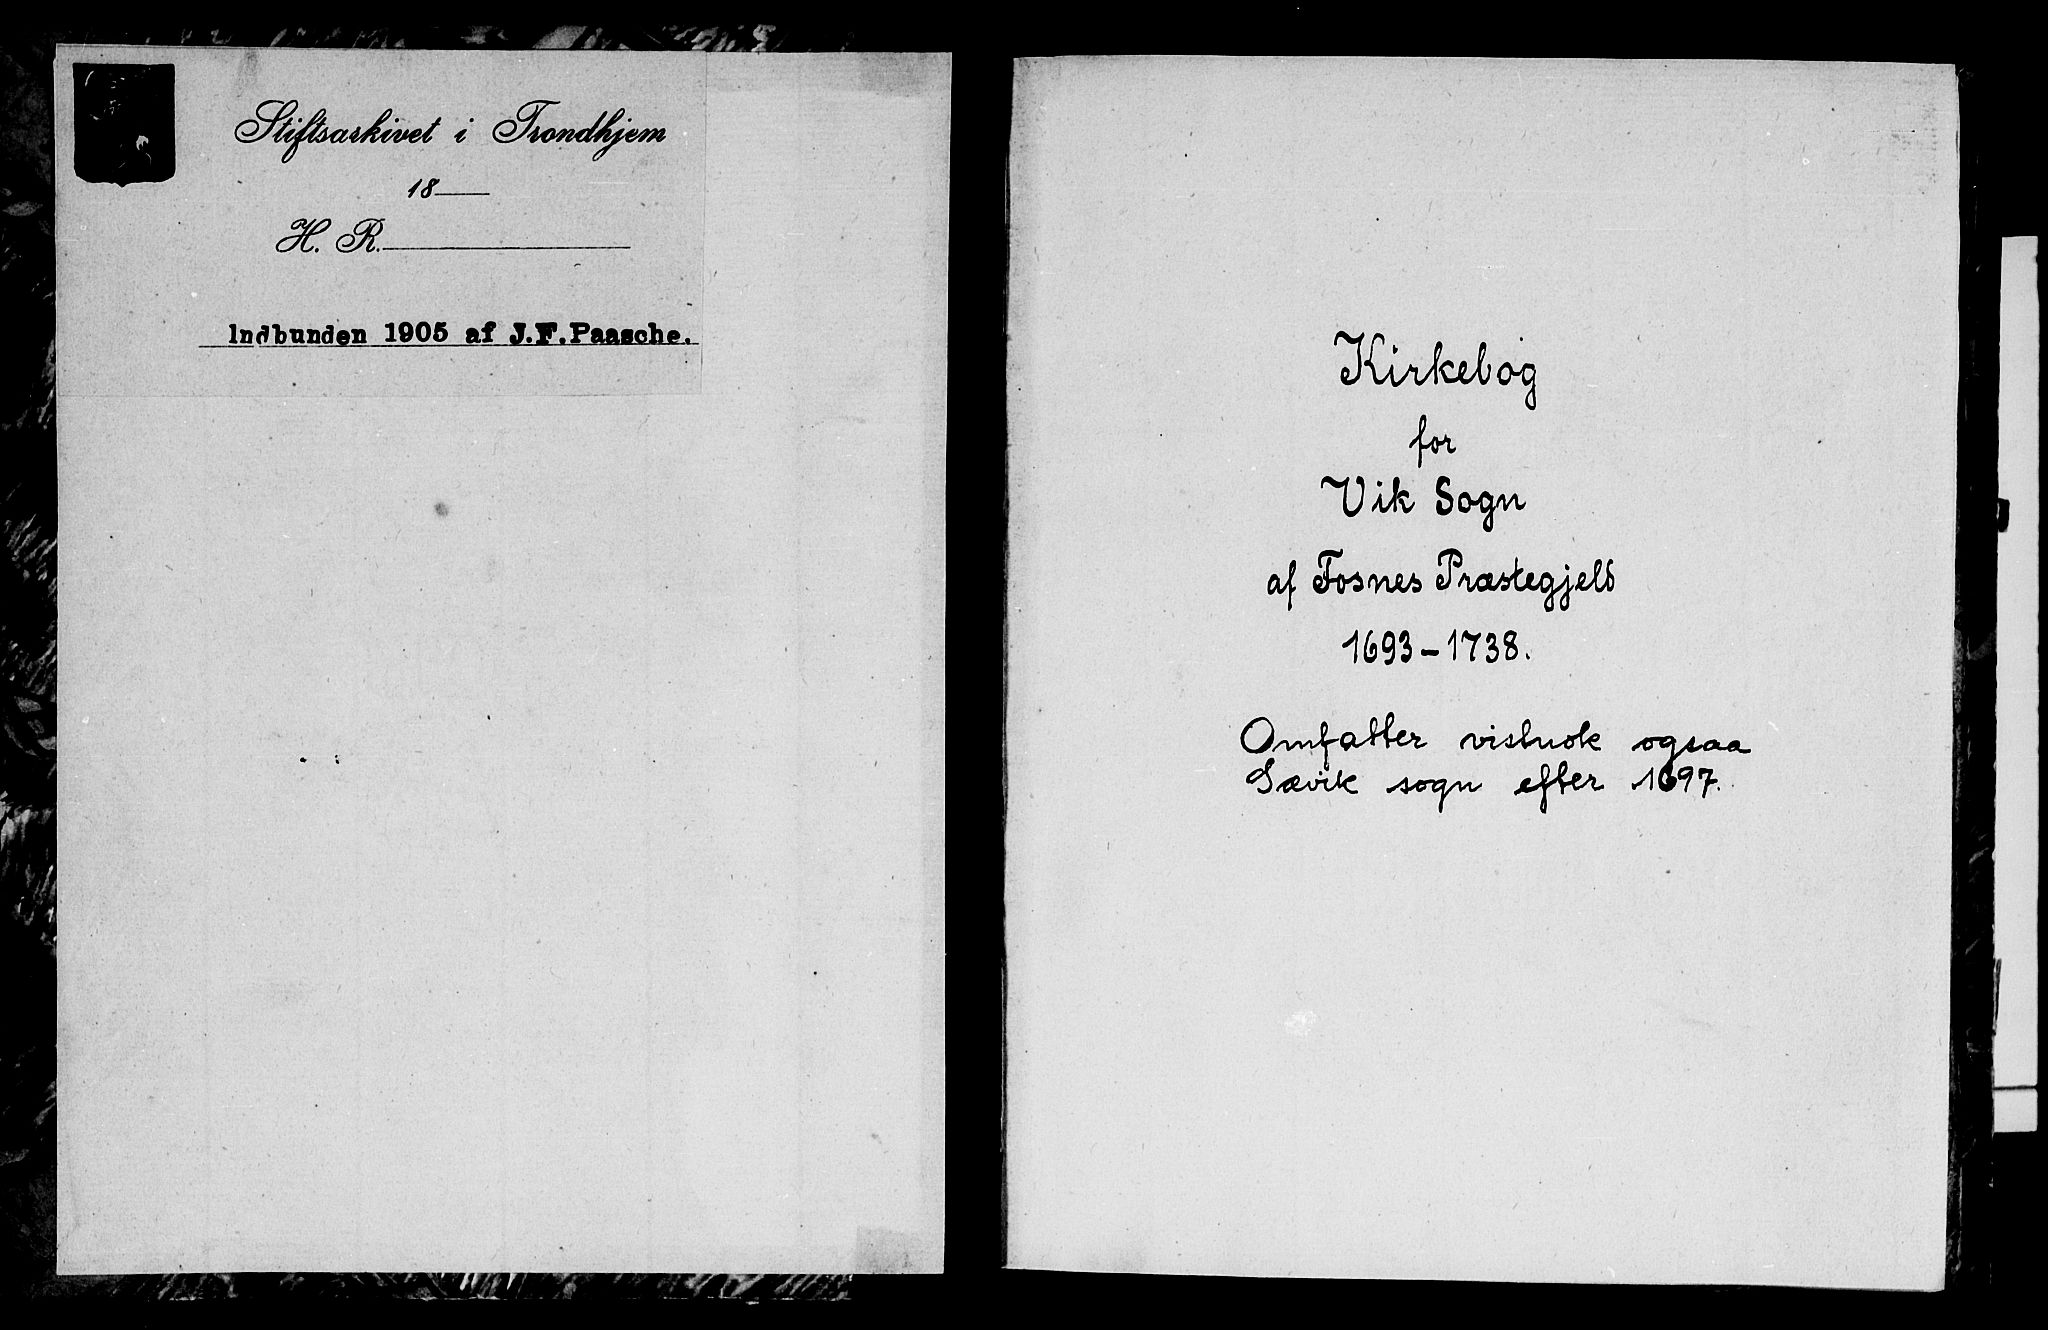 Stiftsarkivet i Trondhjem
18
H. R.
Indbunden 1905 af J.F.Paasche.
Kirkebog
for
Vik Sogn
af Fosnes Præstegjeld
1693–1738.
Omfatter vistnok ogsaa
Sævik sogn efter 1697.